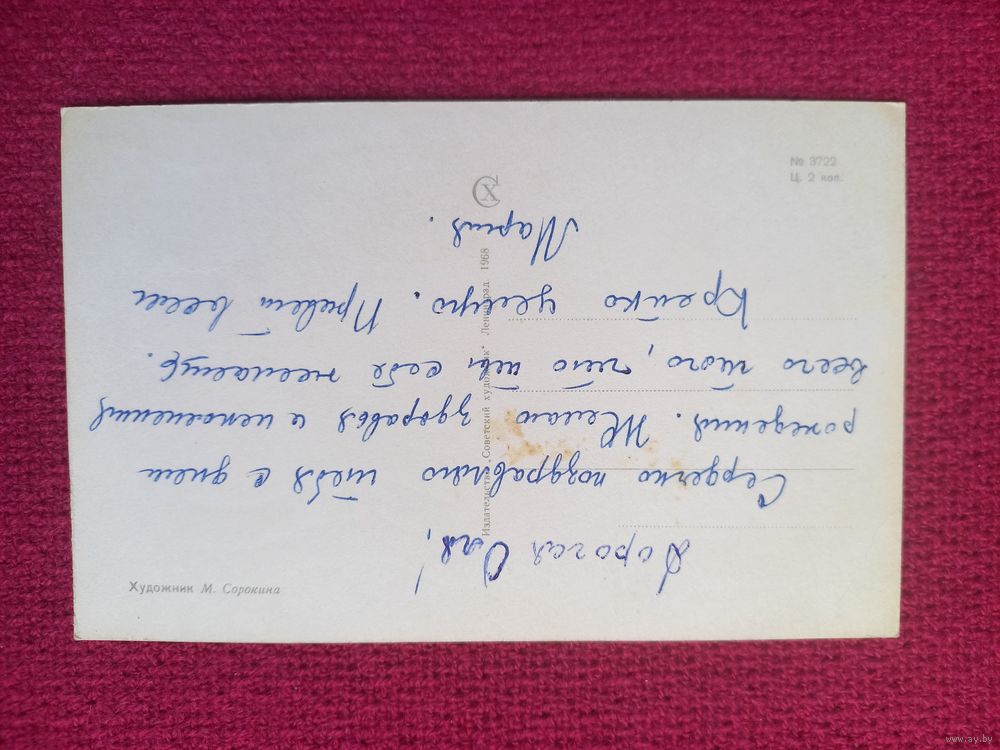 Дорогая Оля!
Сердечно поздравляю тебя с днем
рождения. Желаю здоровья и исполнения
всего того, что ты себе желаешь.
Крепко целую. Привет всем
Мария.
№ 3722
Ц. 2 коп.
СХ
Издательство „Советский художник“ Ленинград 1968
Художник М. Сорокина
www.ay.by